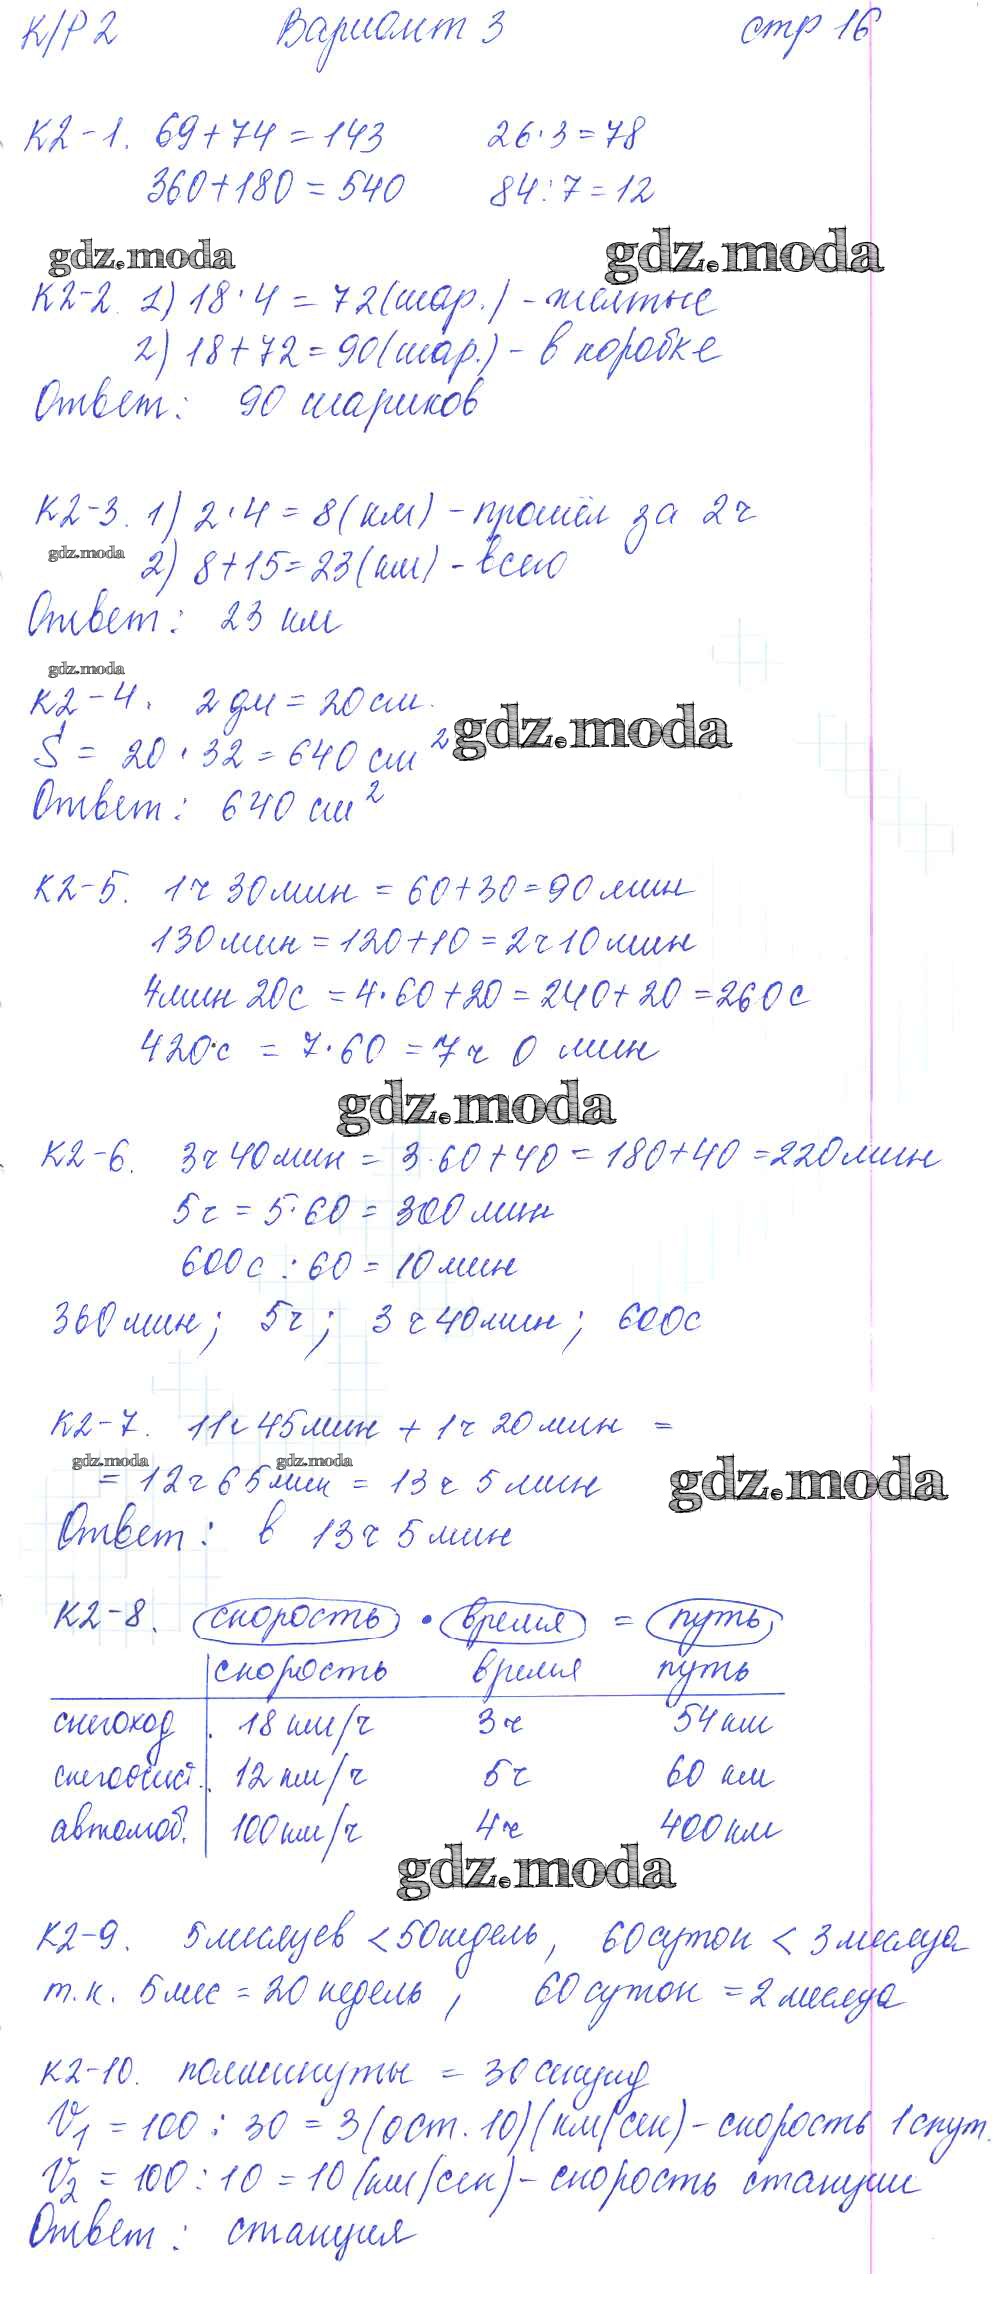 К/Р 2 Вариант 3 стр 16
К2-1. 69+74=143 26·3=78
360+180=540 84:7=12
gdz.moda gdz.moda
К2-2. 1) 18·4=72(шар.) - желтые
2) 18+72=90(шар.) - в коробке
Ответ: 90 шариков
К2-3. 1) 2·4=8(км) - прошёл за 2ч
gdz.moda
2) 8+15=23(км) - всего
Ответ: 23 км
gdz.moda
К2-4. 2 дм = 20 см.
S = 20·32=640 см² gdz.moda
Ответ: 640 см²
К2-5. 1ч 30 мин = 60+30=90 мин
130 мин = 120+10 = 2ч 10 мин
4 мин 20с = 4·60+20=240+20=260с
420с = 7·60 = 7ч 0 мин
gdz.moda
К2-6. 3ч 40 мин = 3·60+40=180+40=220 мин
5ч = 5·60 = 300 мин
600с : 60 = 10 мин
360 мин; 5ч; 3ч 40 мин; 600с
К2-7. 11ч 45 мин + 1ч 20 мин =
gdz.moda gdz.moda gdz.moda
= 12ч 65 мин = 13ч 5 мин
Ответ: в 13ч 5 мин
К2-8. скорость · время = путь
скорость время путь
снегоход 18 км/ч 3ч 54 км
12 км/ч 5ч 60 км
автомоб. 100 км/ч 4ч 400 км
gdz.moda
К2-9. 5 месяцев < 50 недель, 60 суток < 3 месяца
т.к. 5 мес = 20 недель, 60 суток = 2 месяца
К2-10. полминуты = 30 секунд
V₁ = 100 : 30 = 3 (ост. 10)(км/сек) - скорость 1 спут.
V₂ = 100 : 10 = 10 (км/сек) - скорость станции
Ответ: станция